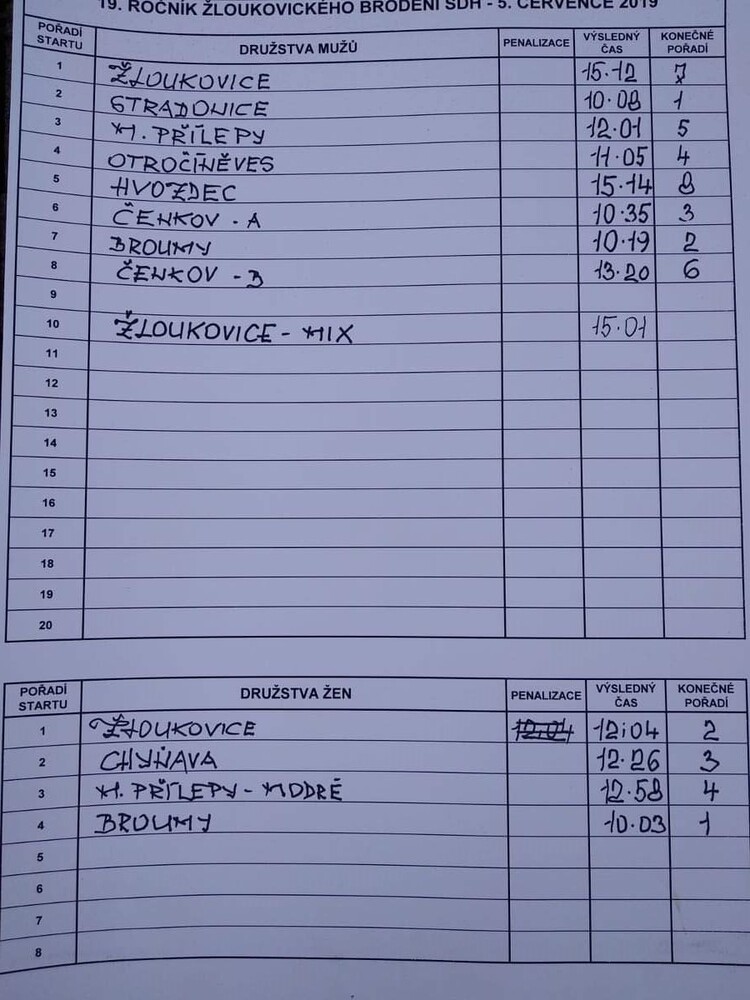 19. ROČNÍK ŽLOUKOVICKÉHO BRODĚNÍ SDH - 5. ČERVENCE 2019
POŘADÍ STARTU DRUŽSTVA MUŽŮ PENALIZACE VÝSLEDNÝ ČAS KONEČNÉ POŘADÍ
1 ŽLOUKOVICE 15.12 7
2 STRADONICE 10.08 1
3 M. PŘÍLEPY 12.01 5
4 OTROČÍNĚVES 11.05 4
5 HVOZDEC 15.14 8
6 ČENKOV - A 10.35 3
7 BROUMY 10.19 2
8 ČENKOV - B 13.20 6
9
10 ŽLOUKOVICE - MIX 15.01
11
12
13
14
15
16
17
18
19
20
POŘADÍ STARTU DRUŽSTVA ŽEN PENALIZACE VÝSLEDNÝ ČAS KONEČNÉ POŘADÍ
1 ŽLOUKOVICE 12.04 12:04 2
2 CHYŇAVA 12.26 3
3 M. PŘÍLEPY - MODRÉ 12.58 4
4 BROUMY 10.03 1
5
6
7
8